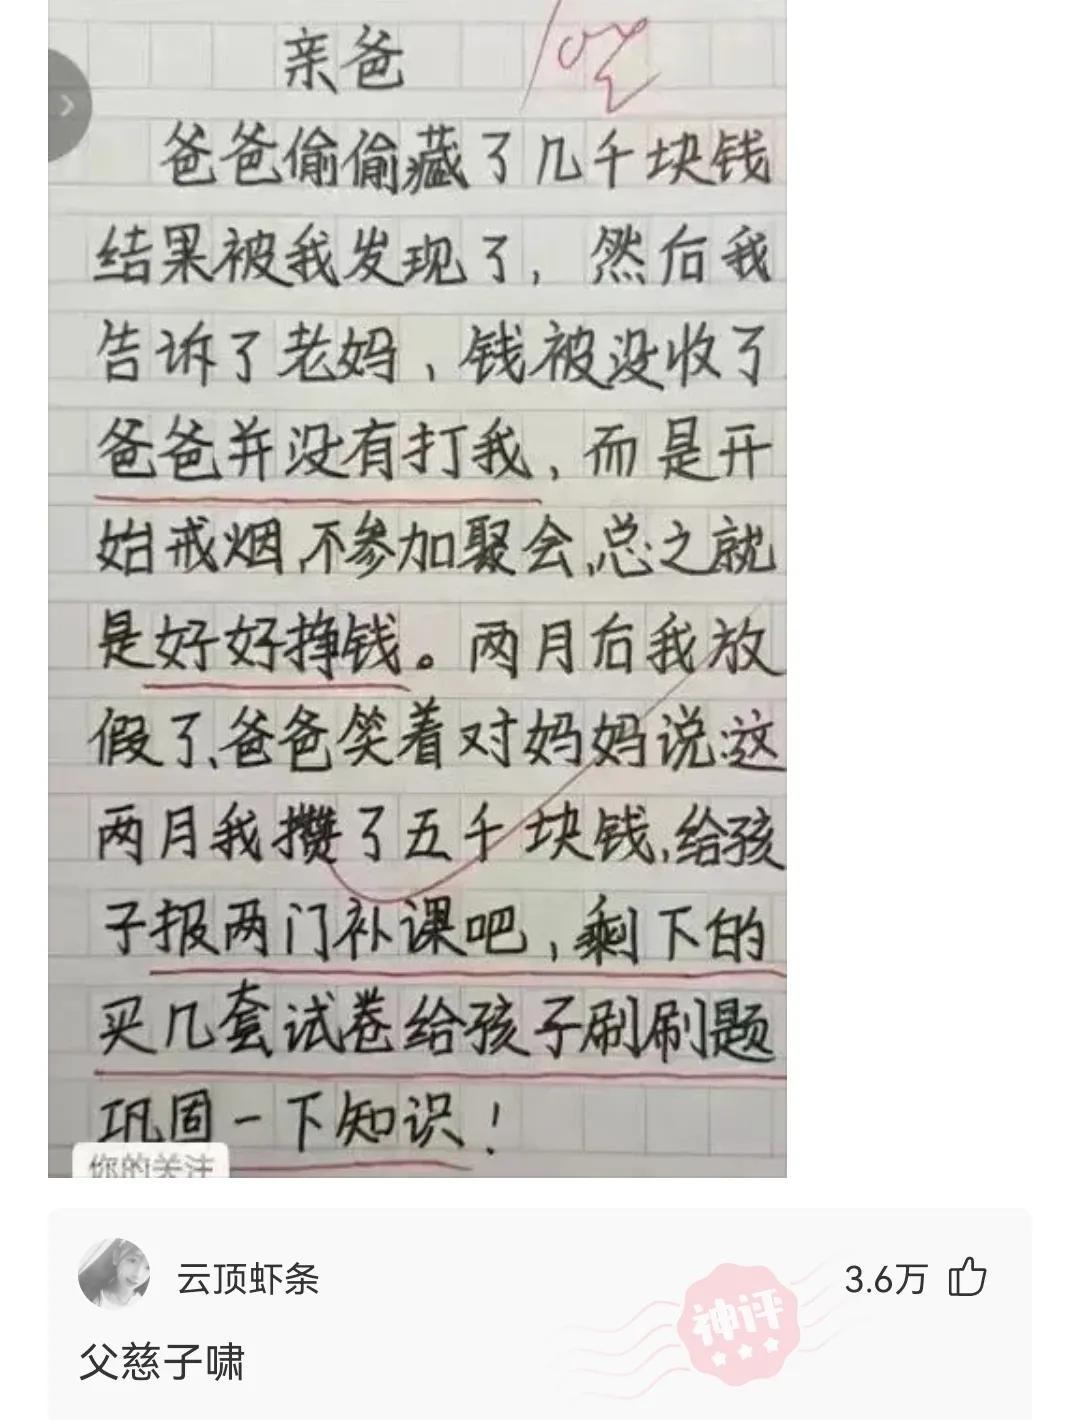 亲爸
爸爸偷偷藏了几千块钱
结果被我发现了，然后我
告诉了老妈，钱被没收了
爸爸并没有打我，而是开
始戒烟，不参加聚会，总之就
是好好挣钱。两月后我放
假了、爸爸笑着对妈妈说：这
两月我攒了五千块钱，给孩
子报两门补课吧，剩下的
买几套试卷给孩子刷刷题
巩固一下知识！
你的关注
云顶虾条
3.6万
神评
父慈子啸